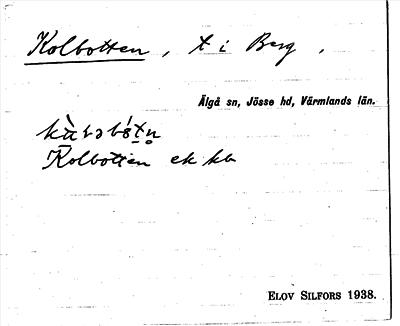 Kolbotten, t i Berg.
Älgå sn, Jösse hd, Värmlands län.
Kolbotten ek kb
ELOV SILFORS 1938.